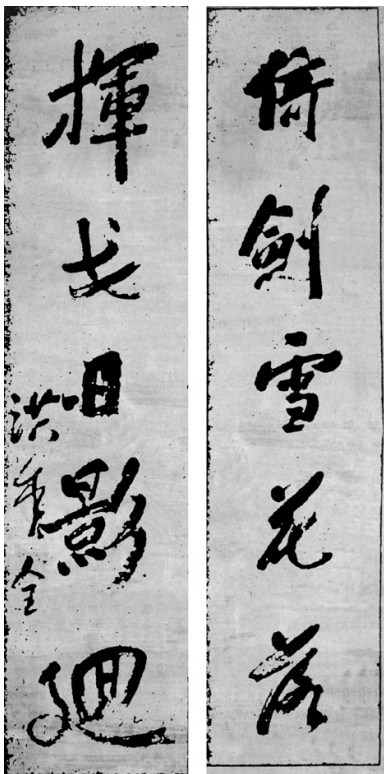 倚劍雪花落
揮戈日影迴
洪秀全